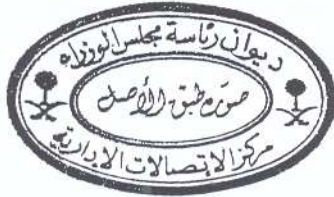 ديوان رئاسة مجلس الوزراء
صورة طبق الأصل
مركز الاتصالات الادارية